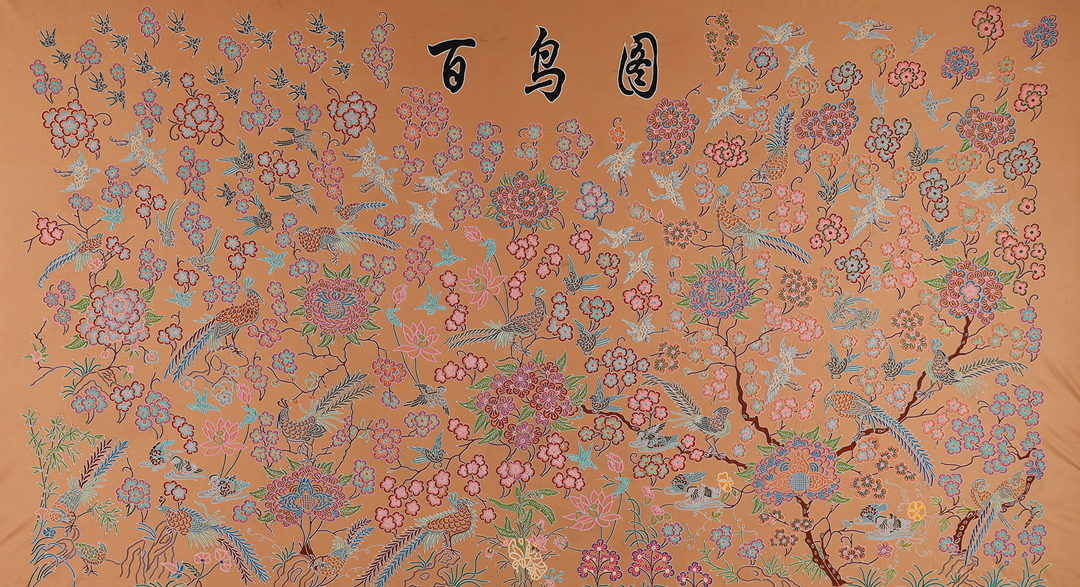 百鸟图